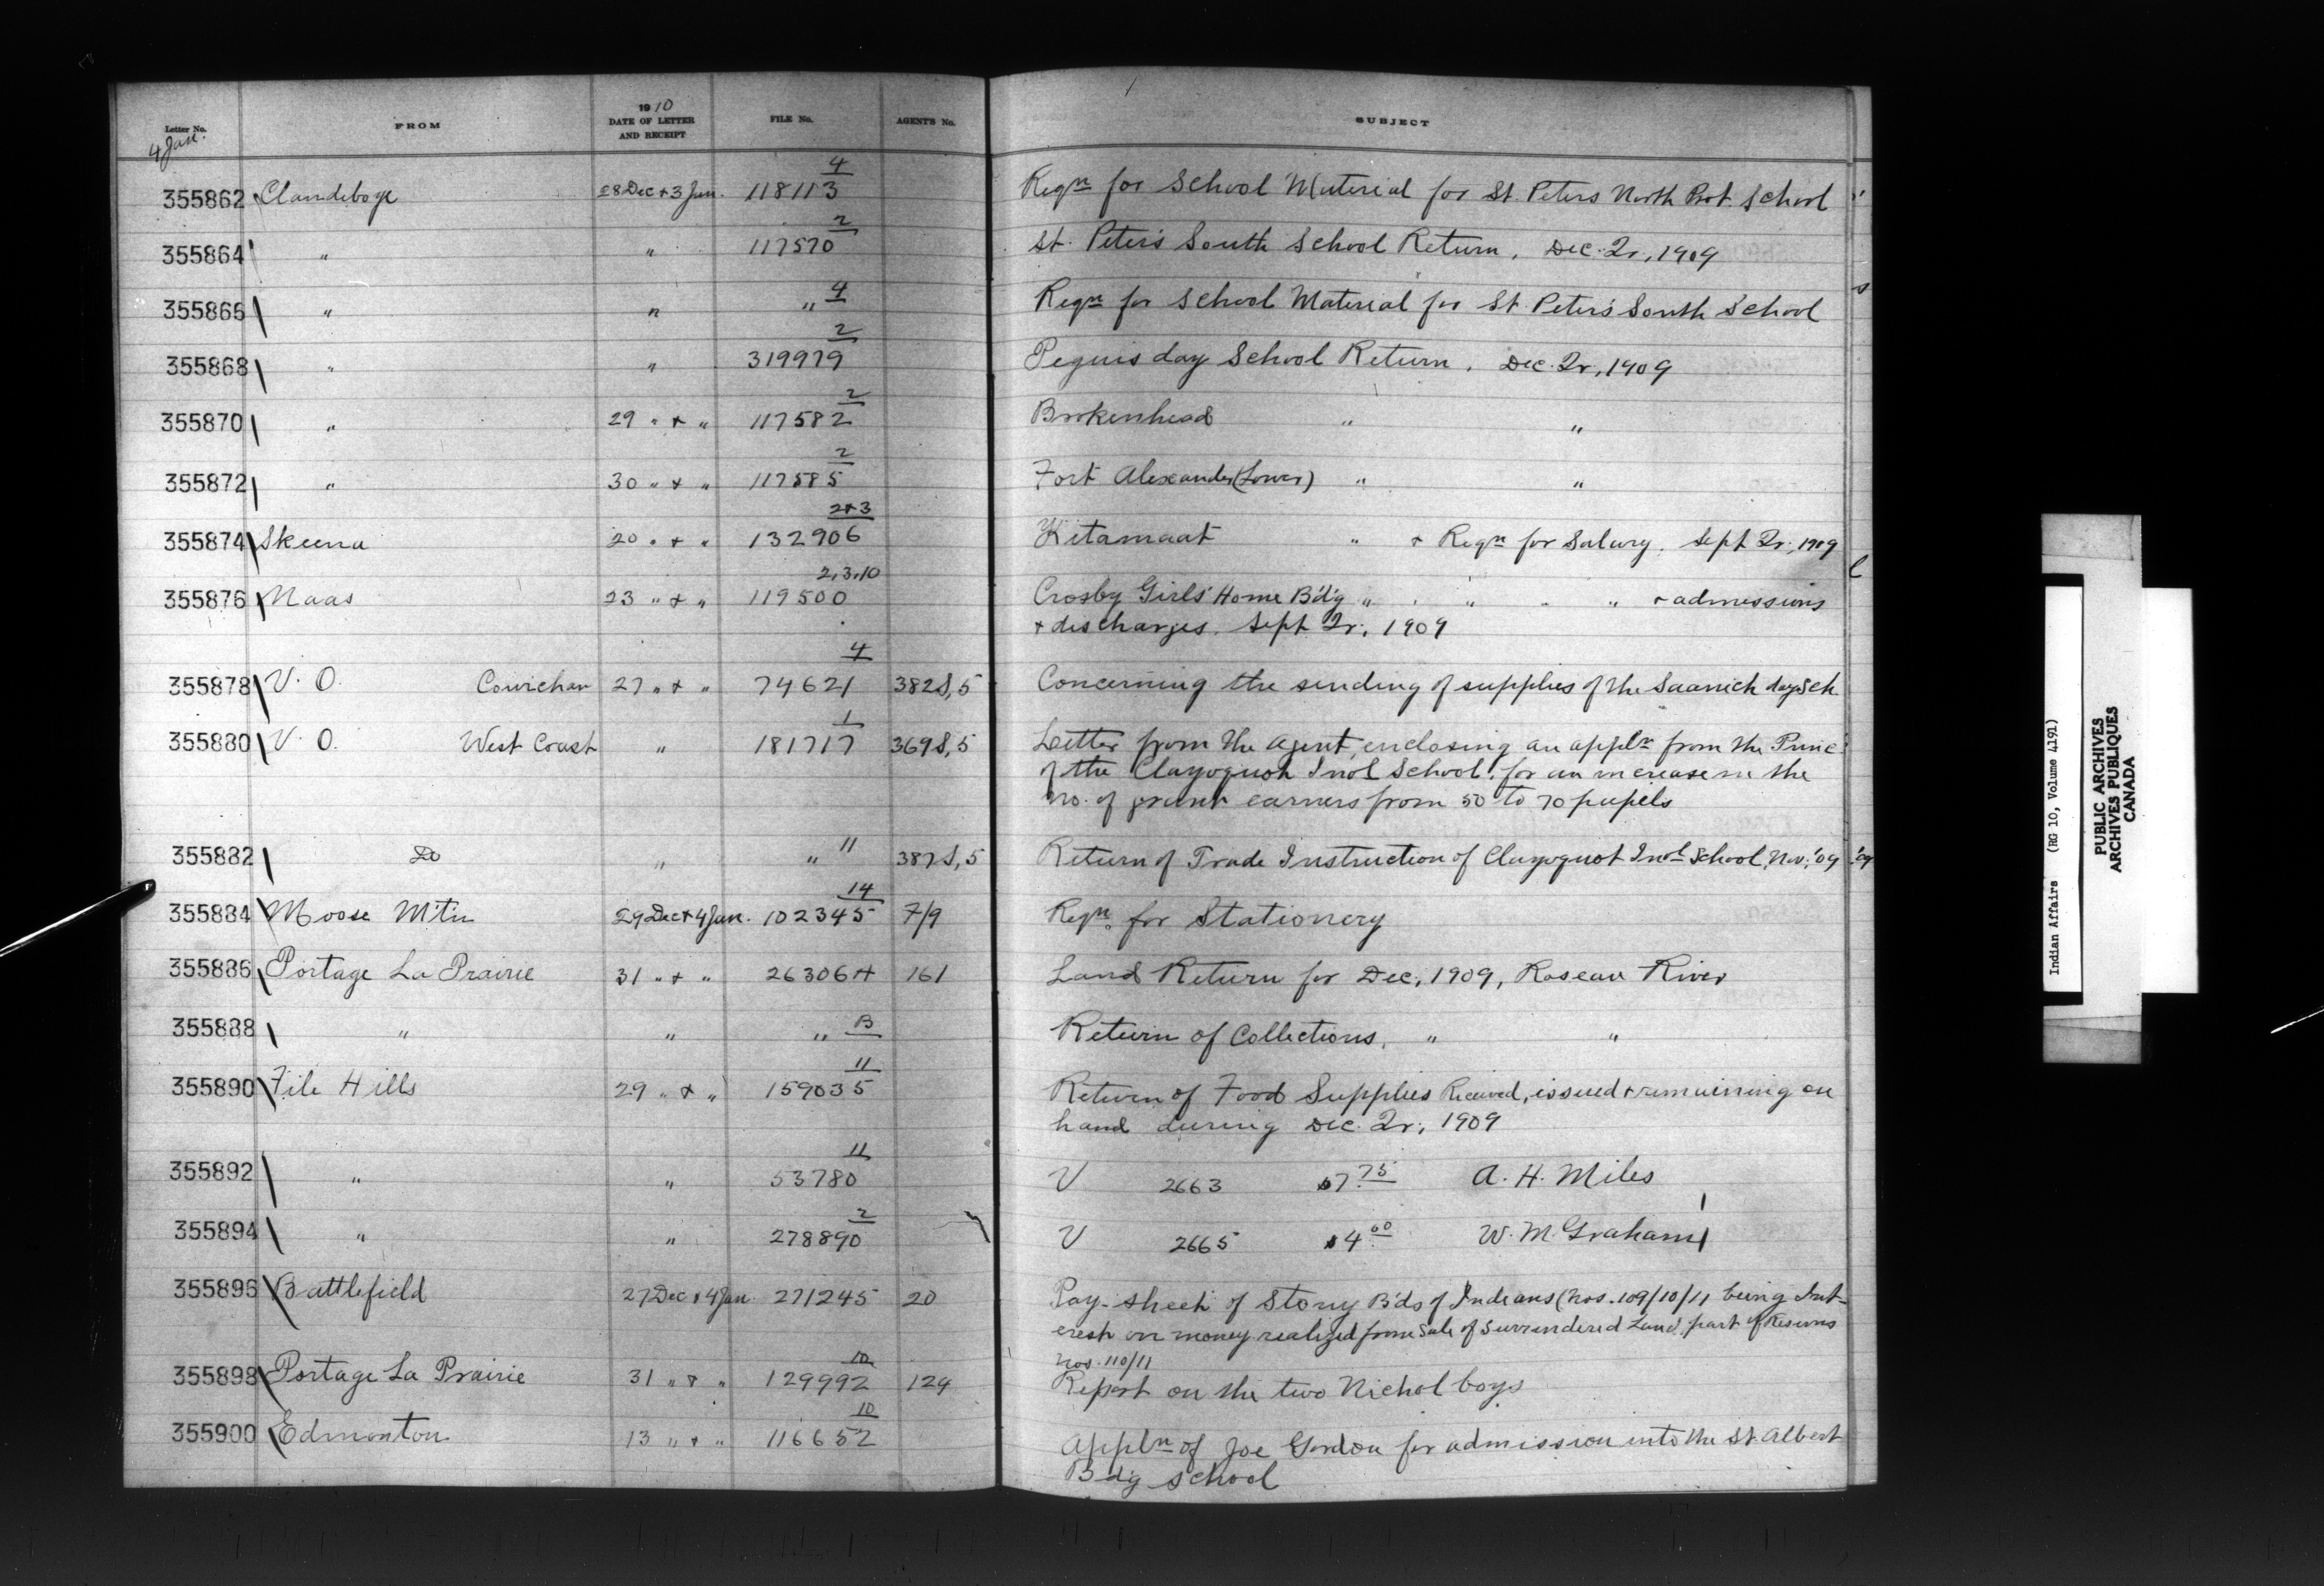 Letter No. FROM 1910 DATE OF LETTER AND RECEIPT FILE No. AGENT'S No. SUBJECT
4 Jan.
355862 Clandeboye 28 Dec + 3 Jan. 118113 4 Reqn for School Material for St. Peters North Prot. School
355864 " " 117570 2 St. Peter's South School Return, Dec. Qr., 1909
355866 " " " 4 Reqn for School Material for St Peter's South School
355868 " " 319979 2 Peguis day School Return, Dec. Qr., 1909
355870 " 29 " + " 117582 2 Brokenhead " "
355872 " 30 " + " 117585 2 Fort Alexander (Lower) " "
355874 Skeena 20 " + " 132906 2+3 Kitamaat " + Reqn for Salary, Sept Qr., 1909
355876 Naas 23 " + " 119500 2,3,10 Crosby Girls' Home B'd'g " " " " + admissions
+ discharges, Sept Qr., 1909
355878 V. O. Cowichan 27 " + " 74621 4 382S,5 Concerning the sending of supplies of the Saanich day Sch.
355880 V. O. West Coast " 181717 1 369S,5 Letter from the Agent, enclosing an appln from the Princ.
of the Clayoquot Ind'l School, for an increase in the
no. of grant earners from 50 to 70 pupils
355882 Do " " 11 387S,5 Return of Trade Instruction of Clayoquot Ind'l School, Nov. '09
355884 Moose Mtn 29 Dec + 4 Jan. 102345 14 7/9 Reqn for Stationery
355886 Portage La Prairie 31 " + " 26306A 161 Land Return for Dec, 1909, Roseau River
355888 " " " B Return of Collections, " "
355890 File Hills 29 " + " 159035 11 Return of Food Supplies Received, issued + remaining on
hand during Dec. Qr., 1909
355892 " " 53780 11 V 2663 $7.75 A. H. Miles
355894 " " 278890 2 V 2665 $4.00 W. M. Graham
355896 Battlefield 27 Dec + 4 Jan. 271245 20 Pay-sheet of Stony B'ds of Indians (Nos. 109/10/11 being Int-
erest on money realized from Sale of Surrendered Land, part of Reserves
Nos. 110/11
355898 Portage La Prairie 31 " + " 129992 10 124 Report on the two Nichol boys
355900 Edmonton 13 " + " 116652 10 Appln of Joe Gordon for admission into the St. Albert
B'd'g School
Indian Affairs (RG 10, Volume 4191)
PUBLIC ARCHIVES
ARCHIVES PUBLIQUES
CANADA